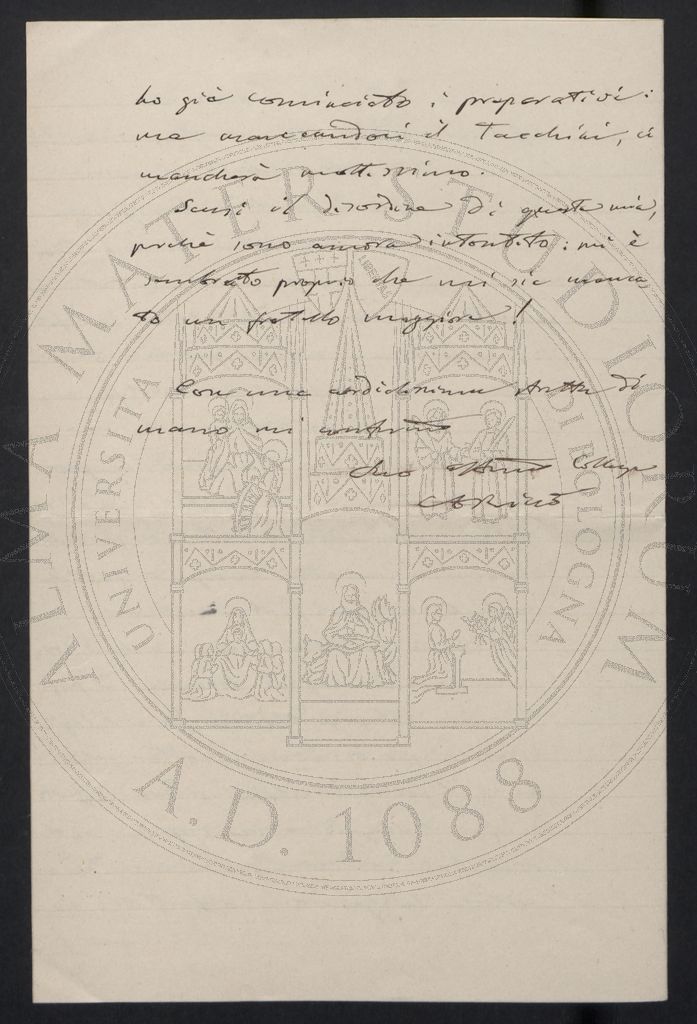 ho già cominciato i preparativi:
ma mancandoci il Tacchini, ci
mancherà moltissimo.
Scusi il disordine di questa mia,
perchè sono ancora intontito: mi è
sembrato proprio che mi sia manca
to un fratello maggiore!
Con una cordialissima stretta di
mano mi confermo
Suo Collega
A Riccò
ALMA MATER STUDIORUM
UNIVERSITÀ DI BOLOGNA
A.D. 1088